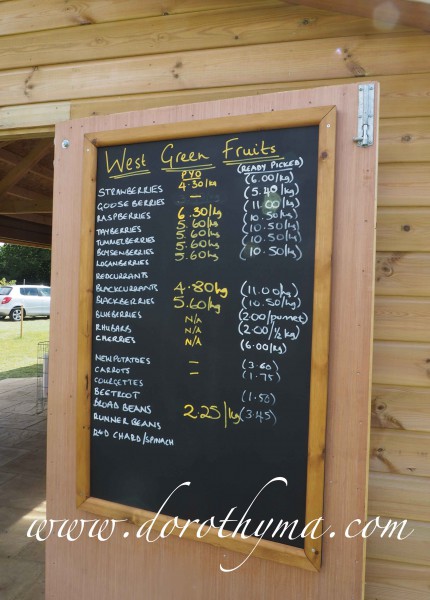 West Green Fruits
PYO (READY PICKED)
STRAWBERRIES 4.30/kg (6.00/kg)
GOOSEBERRIES — (5.40/kg)
RASPBERRIES 6.30/kg (11.00/kg)
TAYBERRIES 5.60/kg (10.50/kg)
TUMMELBERRIES 5.60/kg (10.50/kg)
BOYSENBERRIES 5.60/kg (10.50/kg)
LOGANBERRIES 5.60/kg (10.50/kg)
REDCURRANTS
BLACKCURRANTS 4.80/kg (11.00/kg)
BLACKBERRIES 5.60/kg (10.50/kg)
BLUEBERRIES N/A (2.00/punnet)
RHUBARB N/A (2.00/½kg)
CHERRIES N/A (6.00/kg)
NEW POTATOES — (3.60)
CARROTS — (1.75)
COURGETTES
BEETROOT (1.50)
BROAD BEANS 2.25/kg (3.45)
RUNNER BEANS
RED CHARD/SPINACH
www.dorothyma.com